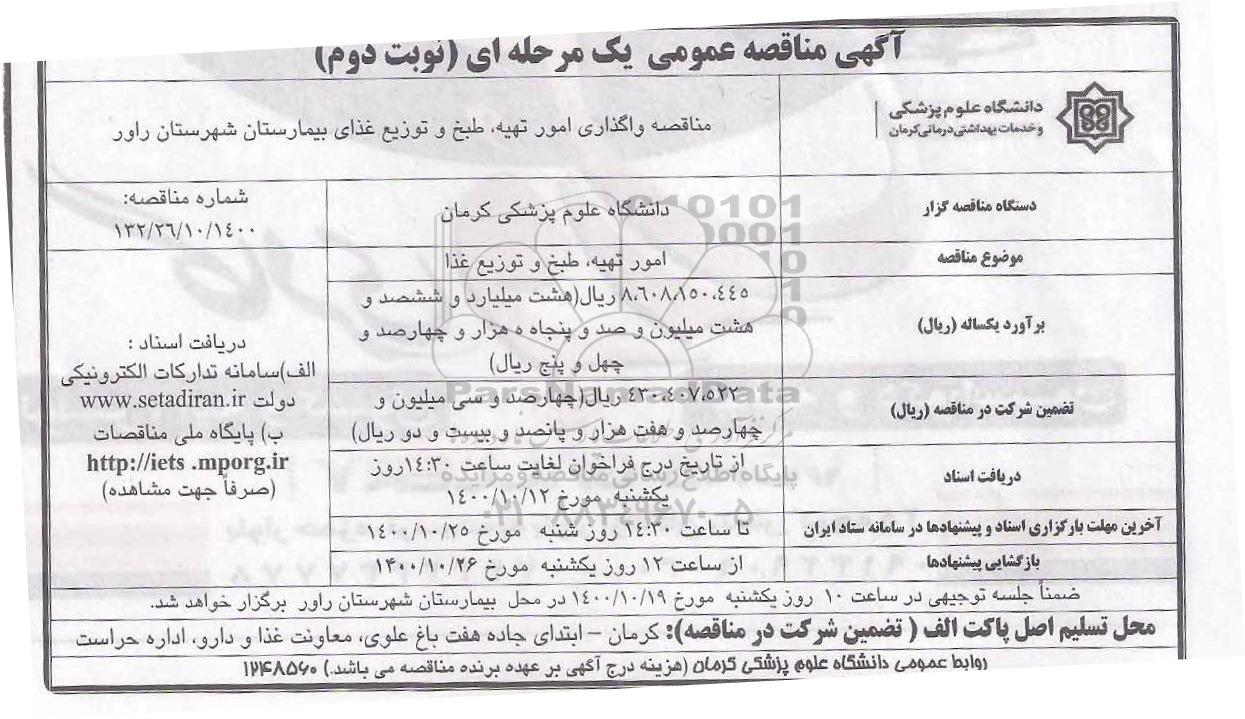 آگهی مناقصه عمومی یک مرحله ای (نوبت دوم)
دانشگاه علوم پزشکی
و خدمات بهداشتی درمانی کرمان
مناقصه واگذاری امور تهیه، طبخ و توزیع غذای بیمارستان شهرستان راور
دستگاه مناقصه گزار
دانشگاه علوم پزشکی کرمان
شماره مناقصه:
١٣٢/٢٦/١٠/١٤٠٠
موضوع مناقصه
امور تهیه، طبخ و توزیع غذا
برآورد یکساله (ریال)
٨،٦٠٨،١٥٠،٤٤٥ ریال(هشت میلیارد و ششصد و
هشت میلیون و صد و پنجاه ه هزار و چهارصد و
چهل و پنج ریال)
تضمین شرکت در مناقصه (ریال)
٤٣٠،٤٠٧،٥٢٢ ریال(چهارصد و سی میلیون و
چهارصد و هفت هزار و پانصد و بیست و دو ریال)
دریافت اسناد :
الف)سامانه تدارکات الکترونیکی
دولت www.setadiran.ir
ب) پایگاه ملی مناقصات
http://iets .mporg.ir
(صرفاً جهت مشاهده)
دریافت اسناد
از تاریخ درج فراخوان لغایت ساعت ١٤:٣٠روز
یکشنبه مورخ ١٤٠٠/١٠/١٢
آخرین مهلت بارگزاری اسناد و پیشنهادها در سامانه ستاد ایران
تا ساعت ١٤:٣٠ روز شنبه مورخ ١٤٠٠/١٠/٢٥
بازگشایی پیشنهادها
از ساعت ١٢ روز یکشنبه مورخ ١٤٠٠/١٠/٢٦
ضمناً جلسه توجیهی در ساعت ١٠ روز یکشنبه مورخ ١٤٠٠/١٠/١٩ در محل بیمارستان شهرستان راور برگزار خواهد شد.
محل تسلیم اصل پاکت الف ( تضمین شرکت در مناقصه): کرمان – ابتدای جاده هفت باغ علوی، معاونت غذا و دارو، اداره حراست
روابط عمومی دانشگاه علوم پزشکی کرمان (هزینه درج آگهی بر عهده برنده مناقصه می باشد.) ۱۲۴۸۵۶۰
ParsNamadData
پایگاه اطلاع رسانی مناقصه و مزایده
۰۲۱-۸۸۳۴۹۶۷۰-۵